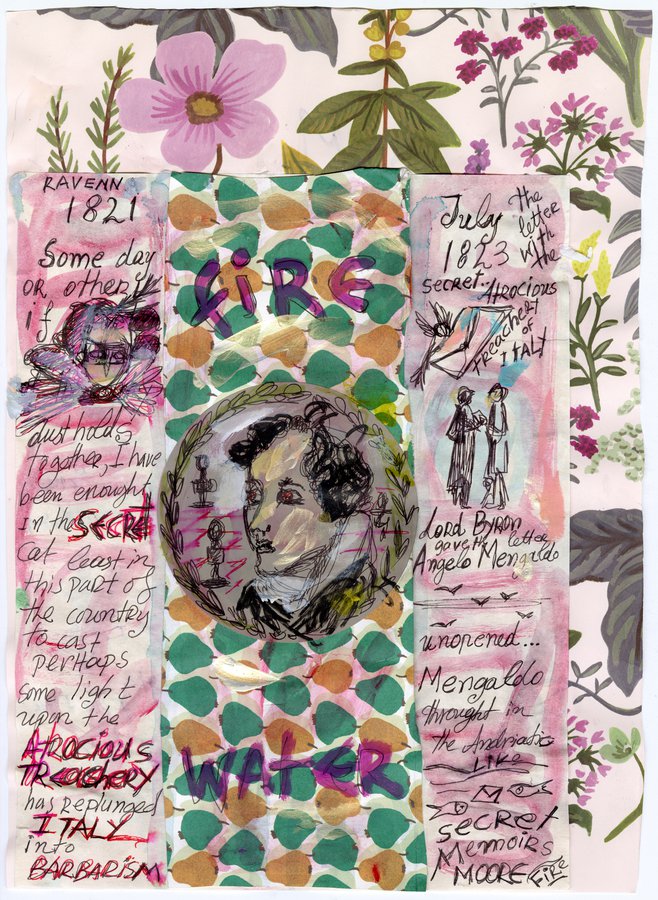 RAVENN
1821
Some day
OR other
if
dust holds
together, I have
been enought
in the SECRET
cat least in
this part of
the country
to cast
perhaps
some light
upon the
ATROCIOUS
TREACHERY
has replunged
ITALY
into
BARBARISM
FIRE
WATER
July
1823
the
letter
with
the
secret..
Atrocious
TREACHERY
of
ITALY
LORD BYRON
gave the letter
Angelo Mengaldo
unopened...
Mengaldo
throught in
the Andriatic
LIKE
M
secret
Memoirs
MOORE
FIRE